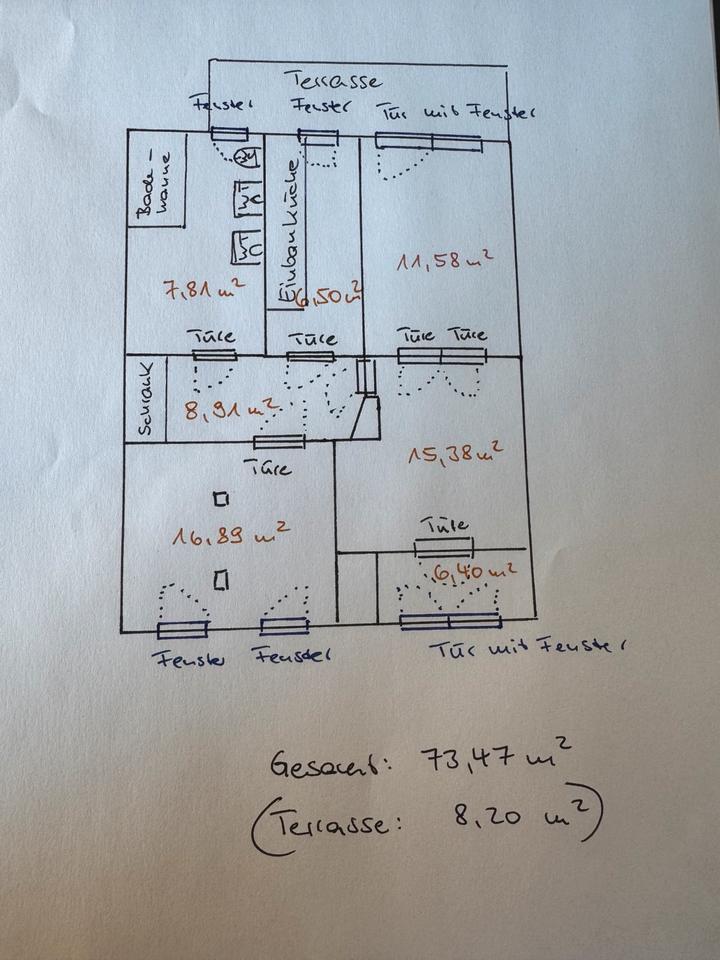 Terrasse
Fenster
Fenster
Tür mit Fenster
Bade-
wanne
WC
WT
WT
Einbauküche
7,81 m²
6,50 m²
11,58 m²
Türe
Türe
Türe
Türe
Schrank
8,91 m²
Türe
15,38 m²
16,89 m²
Türe
6,40 m²
Fenster
Fenster
Tür mit Fenster
Gesamt: 73,47 m²
(Terrasse: 8,20 m²)